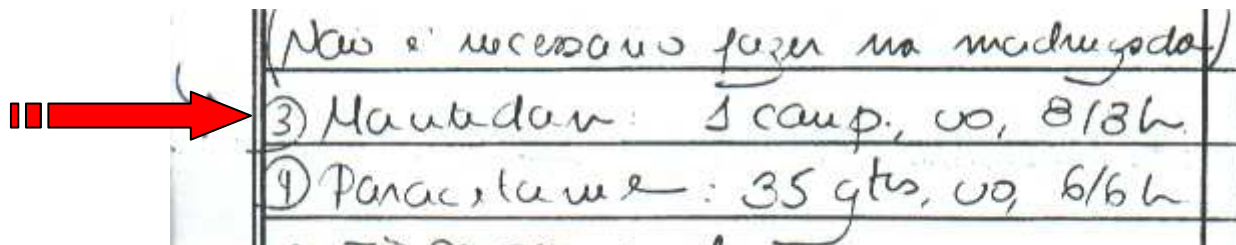 (Não é necessário fazer na madrugada)
3) Mantidan: 1 comp., VO, 8/8h
4) Paracetamol: 35 gts, VO, 6/6h